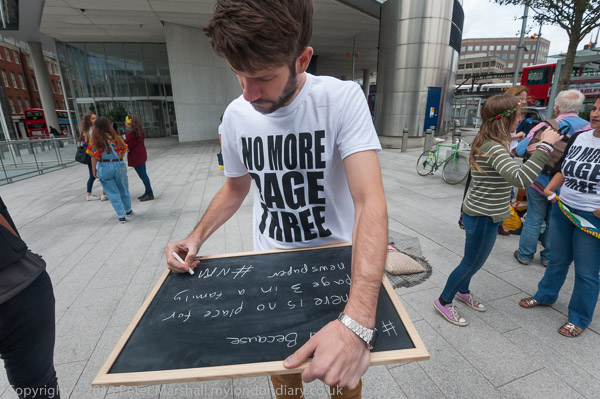 NO MORE
PAGE
THREE
# Because
here is no place for
page 3 in a family
newspaper
#NM
Copyright Peter Marshall.mylondondiary.co.uk